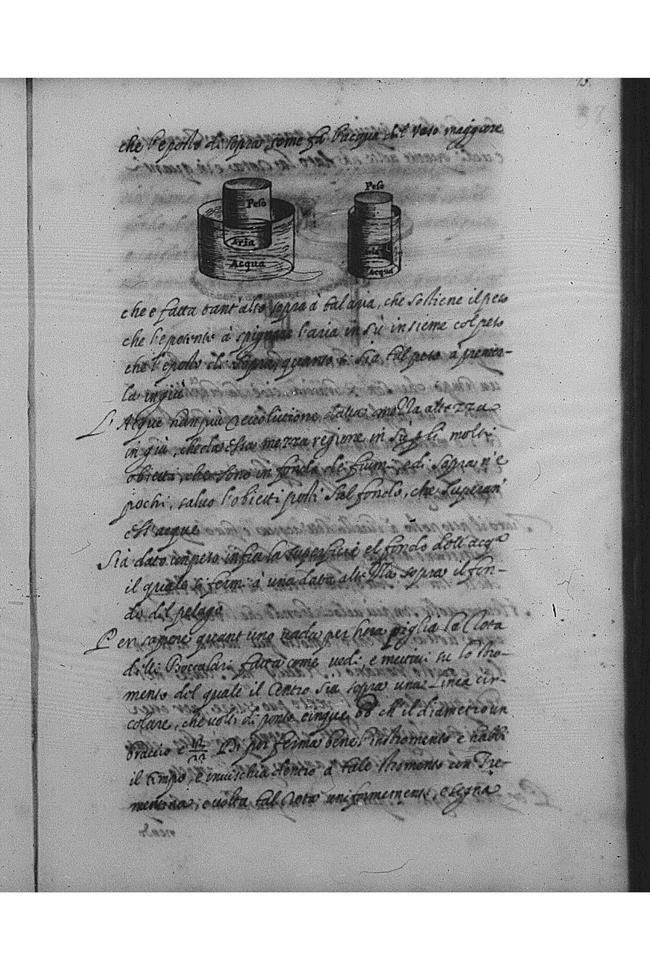 15.
che l'eposto di sopra, come fa l'acqua del Vaso maggiore
Peso
Peso
Aria
Acqua
Acqua
che e fatta tant'alto sopra à tal aria, che sostiene il peso
che l'e potente à spignare l'aria in sù insieme col peso
che l'e posto di sopra, quanto si sia tal peso à premer-
la in giù
L'Acque han più revolutione dalla mezza altezza
in giù, che da essa mezza regione in sù, e li molti
obietti, che sono in fondo de fiumi, e di sopra n'e
pochi, salvo l'obietti posti sul fondo, che superan'
est'acque
Sia dato un peso infra la superficie el fondo dell'acqa
il quale si fermi à una data altezza sopra il fon-
do del pelago
Per sapere quant' uno vada per hora piglia la Rota
delli Boccalari fatta come vedi, e metivi sù lo stro-
mento del quale il Centro sia sopra una Linea cir-
colare, che volti di ponto cinque, ch'il diametro un
braccio e
il tempo e invischia dentro à tale stromento con Tre-
mentina, e volta tal Rota uniformemente, e segna